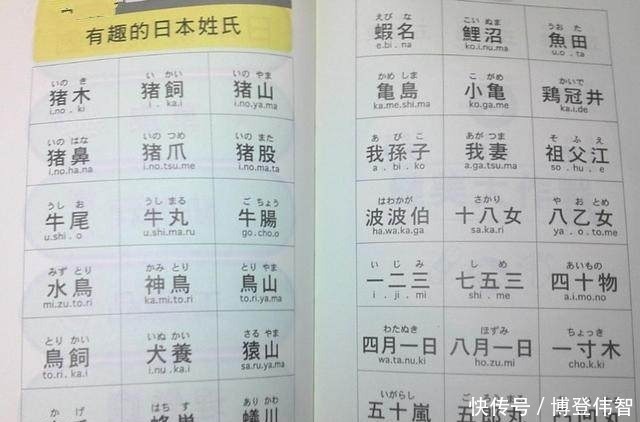 有趣的日本姓氏
いの き いか い いの やま
猪木 猪飼 猪山
i.no.ki i.ka.i i.no.ya.ma
いの はな いの つめ いの また
猪鼻 猪爪 猪股
i.no.ha.na i.no.tsu.me i.no.ma.ta
うし お うし まる ご ちょう
牛尾 牛丸 牛腸
u.shi.o u.shi.ma.ru go.cho.o
みず とり かみ とり とり やま
水鳥 神鳥 鳥山
mi.zu.to.ri ka.mi.to.ri to.ri.ya.ma
とり かい いぬ かい さる やま
鳥飼 犬養 猿山
to.ri.ka.i i.nu.ka.i sa.ru.ya.ma
か げ はち す あり かわ
えび な こい ぬま うお た
蝦名 鯉沼 魚田
e.bi.na ko.i.nu.ma u.o.ta
かめ しま こ がめ かいで
亀島 小亀 鶏冠井
ka.me.shi.ma ko.ga.me ka.i.de
あ び こ あが つま そ ふ え
我孫子 我妻 祖父江
a.bi.ko a.ga.tsu.ma so.hu.e
はわかが さかり や お とめ
波波伯 十八女 八乙女
ha.wa.ka.ga sa.ka.ri ya.o.to.me
い じ み し め あいもの
一二三 七五三 四十物
i.ji.mi shi.me a.i.mo.no
わたぬき ほずみ ちょっき
四月一日 八月一日 一寸木
wa.ta.nu.ki ho.zu.mi cho.k.ki
いがらし
五十嵐
快传号/博登伟智